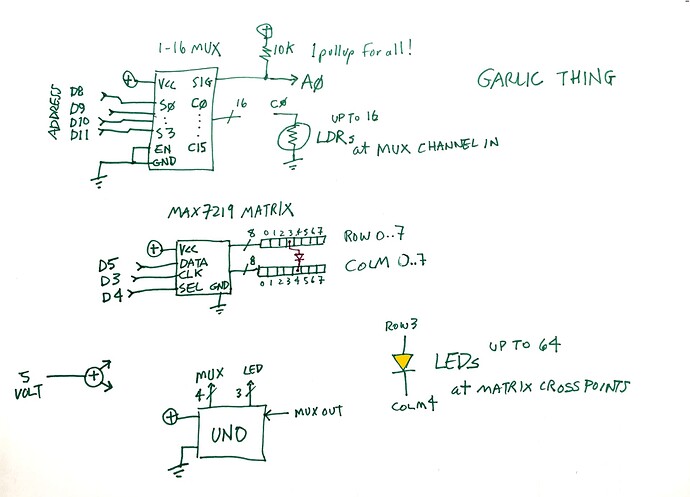 1-16 MUX
10K
1 pullup for all!
GARLIC THING
VCC
SIG
A0
ADDRESS
D8
D9
D10
D11
S0
C0
16
C0
UP TO 16
LDRs
at MUX CHANNEL IN
S3
EN
C15
GND
MAX7219 MATRIX
VCC
8
0 1 2 3 4 5 6 7
ROW 0..7
D5
DATA
D3
CLK
8
COLM 0..7
D4
SEL
GND
0 1 2 3 4 5 6 7
ROW3
UP TO 64
LEDs
at MATRIX CROSS POINTS
COLM4
5
VOLT
MUX
LED
4
3
MUX OUT
UNO